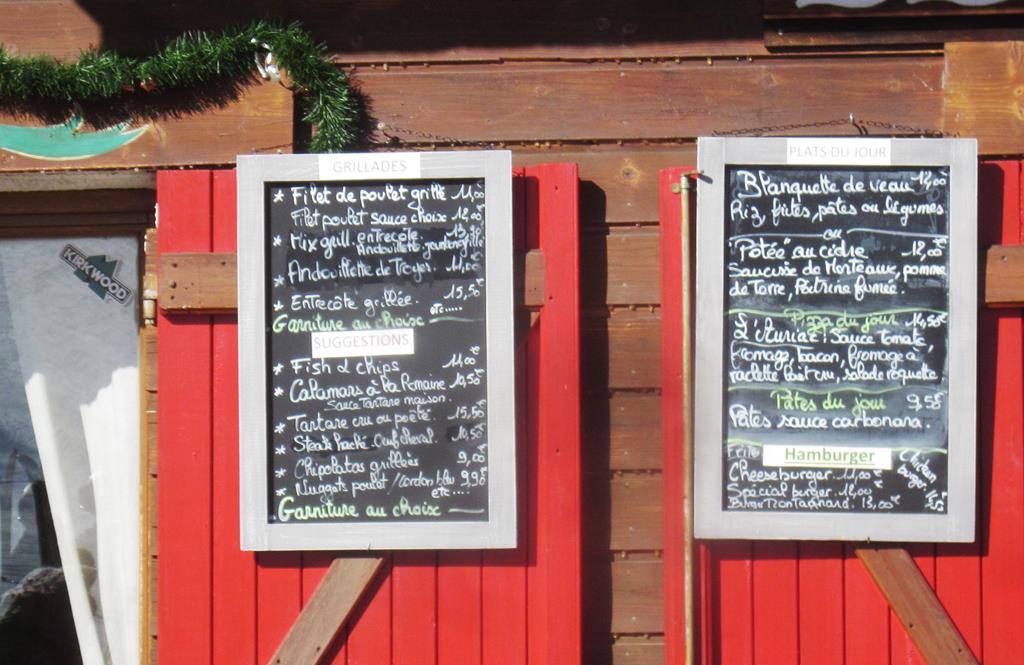 KIRKWOOD
GRILLADES
* Filet de poulet grillé 11,00€
Filet poulet sauce choix 12,00€
* Mix grill. entrecôte
Andouillette jambon grillé
* Andouillette de Troyes.
* Entrecôte grillée. 15,50€
etc.....
Garniture au choix
SUGGESTIONS
* Fish & chips 11,00€
* Calamars à la Romaine 10,50€
Sauce Tartare maison.
* Tartare cru ou poêté. 15,50€
* Steak haché. Oeuf cheval. 10,50€
* Chipolatas grillées 9,00€
* Nuggets poulet / Cordon bleu 9,90€
etc....
Garniture au choix
PLATS DU JOUR
Blanquette de veau 12,00
Riz, frites, pâtes ou légumes
ou
"Potée" au cidre 12,00€
Saucisse de Morteaux, pomme
de Terre, Poitrine fumée.
Pizza du jour
: Sauce Tomate,
fromage, bacon, fromage à
raclette lait cru, salade roquette.
Pâtes du jour 9,50€
Pâtes sauce carbonara.
Frite
Hamburger
Cheeseburger. 11,00€
Spécial burger. 12,00€
Burger Montagnard. 13,00€
Chicken
burger